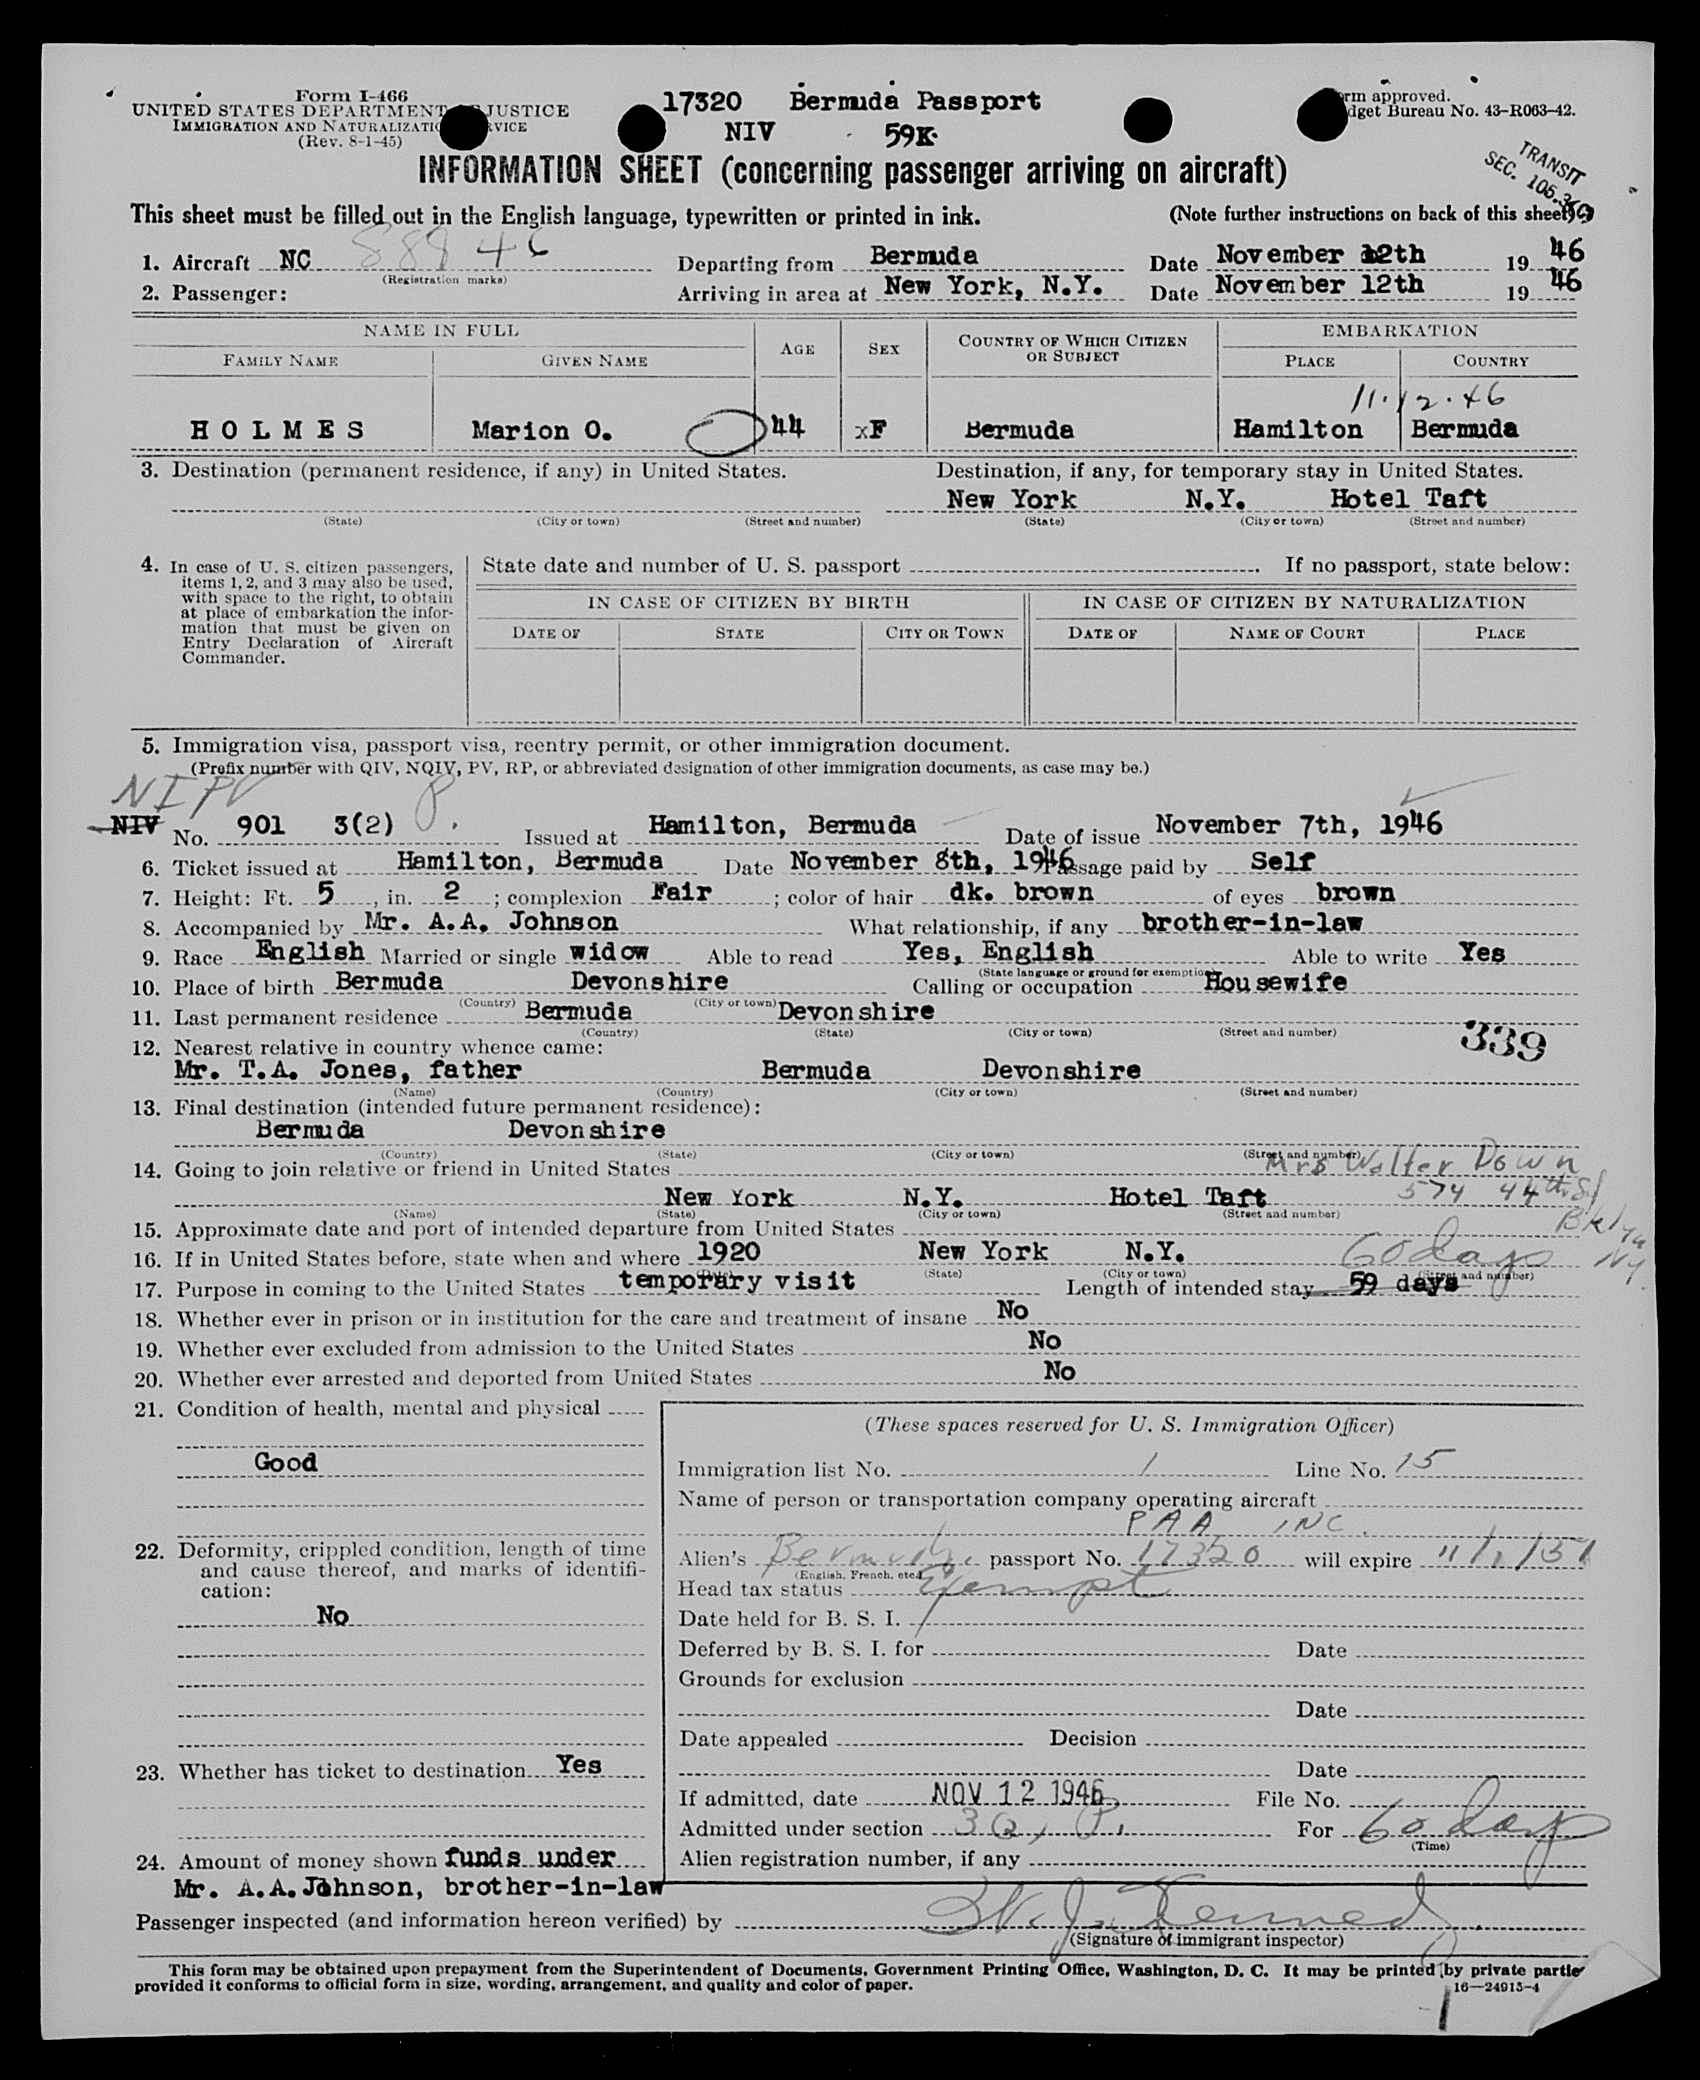 Form I-466
UNITED STATES DEPARTMENT JUSTICE
IMMIGRATION AND NATURALIZATION SERVICE
(Rev. 8-1-45)
17320 Bermuda Passport
NIV 59K
Form approved.
Budget Bureau No. 43-R063-42.
TRANSIT
SEC. 105.3(
INFORMATION SHEET (concerning passenger arriving on aircraft)
This sheet must be filled out in the English language, typewritten or printed in ink. (Note further instructions on back of this sheet)
1. Aircraft NC 88946 Departing from Bermuda Date November 12th 19 46
(Registration marks)
2. Passenger: Arriving in area at New York, N.Y. Date November 12th 19 46
NAME IN FULL AGE SEX COUNTRY OF WHICH CITIZEN OR SUBJECT EMBARKATION
FAMILY NAME GIVEN NAME PLACE COUNTRY
11.12.46
HOLMES Marion O. 44 xF Bermuda Hamilton Bermuda
3. Destination (permanent residence, if any) in United States. Destination, if any, for temporary stay in United States.
New York N.Y. Hotel Taft
(State) (City or town) (Street and number) (State) (City or town) (Street and number)
4. In case of U. S. citizen passengers, items 1, 2, and 3 may also be used, with space to the right, to obtain at place of embarkation the information that must be given on Entry Declaration of Aircraft Commander.
State date and number of U. S. passport . If no passport, state below:
IN CASE OF CITIZEN BY BIRTH IN CASE OF CITIZEN BY NATURALIZATION
DATE OF STATE CITY OR TOWN DATE OF NAME OF COURT PLACE
5. Immigration visa, passport visa, reentry permit, or other immigration document.
(Prefix number with QIV, NQIV, PV, RP, or abbreviated designation of other immigration documents, as case may be.)
NIPV
NIV No. 901 3(2) Issued at Hamilton, Bermuda Date of issue November 7th, 1946
6. Ticket issued at Hamilton, Bermuda Date November 8th, 1946 Passage paid by Self
7. Height: Ft. 5, in. 2; complexion Fair; color of hair dk. brown of eyes brown
8. Accompanied by Mr. A.A. Johnson What relationship, if any brother-in-law
9. Race English Married or single widow Able to read Yes, English Able to write Yes
(State language or ground for exemption)
10. Place of birth Bermuda Devonshire Calling or occupation Housewife
(Country) (City or town)
11. Last permanent residence Bermuda Devonshire
(Country) (State) (City or town) (Street and number)
339
12. Nearest relative in country whence came:
Mr. T.A. Jones, father Bermuda Devonshire
(Name) (Country) (City or town) (Street and number)
13. Final destination (intended future permanent residence):
Bermuda Devonshire
(Country) (State) (City or town) (Street and number)
14. Going to join relative or friend in United States Mrs Walter Down
574 44th St
Bklyn
NY.
New York N.Y. Hotel Taft
(Name) (State) (City or town) (Street and number)
15. Approximate date and port of intended departure from United States
16. If in United States before, state when and where 1920 New York N.Y. 60 days
(Date) (State) (City or town) (Street and number)
17. Purpose in coming to the United States temporary visit Length of intended stay 59 days
18. Whether ever in prison or in institution for the care and treatment of insane No
19. Whether ever excluded from admission to the United States No
20. Whether ever arrested and deported from United States No
21. Condition of health, mental and physical
Good
22. Deformity, crippled condition, length of time and cause thereof, and marks of identification:
No
23. Whether has ticket to destination Yes
24. Amount of money shown funds under
Mr. A.A. Johnson, brother-in-law
(These spaces reserved for U. S. Immigration Officer)
Immigration list No. 1 Line No. 15
Name of person or transportation company operating aircraft
PAA INC.
Alien's Bermuda passport No. 17320 will expire 11/1/51
(English, French, etc.)
Head tax status Exempt
Date held for B. S. I.
Deferred by B. S. I. for Date
Grounds for exclusion
Date
Date appealed Decision
Date
If admitted, date NOV 12 1946 File No.
Admitted under section 3(2), P. For 60 days
(Time)
Alien registration number, if any
Passenger inspected (and information hereon verified) by
(Signature of immigrant inspector)
This form may be obtained upon prepayment from the Superintendent of Documents, Government Printing Office, Washington, D. C. It may be printed by private parties
provided it conforms to official form in size, wording, arrangement, and quality and color of paper. 16—24915-4